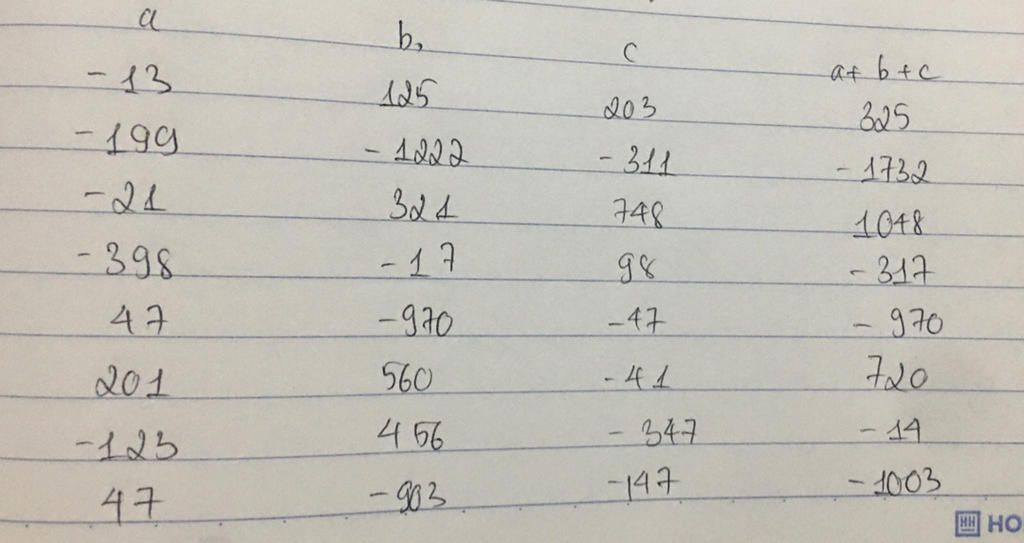 a b, c a+ b+c
-13 125 203 325
-199 -1222 -311 -1732
-21 321 748 1048
-398 -17 98 -317
47 -970 -47 -970
201 560 -41 720
-123 456 -347 -14
47 -903 -147 -1003
HO